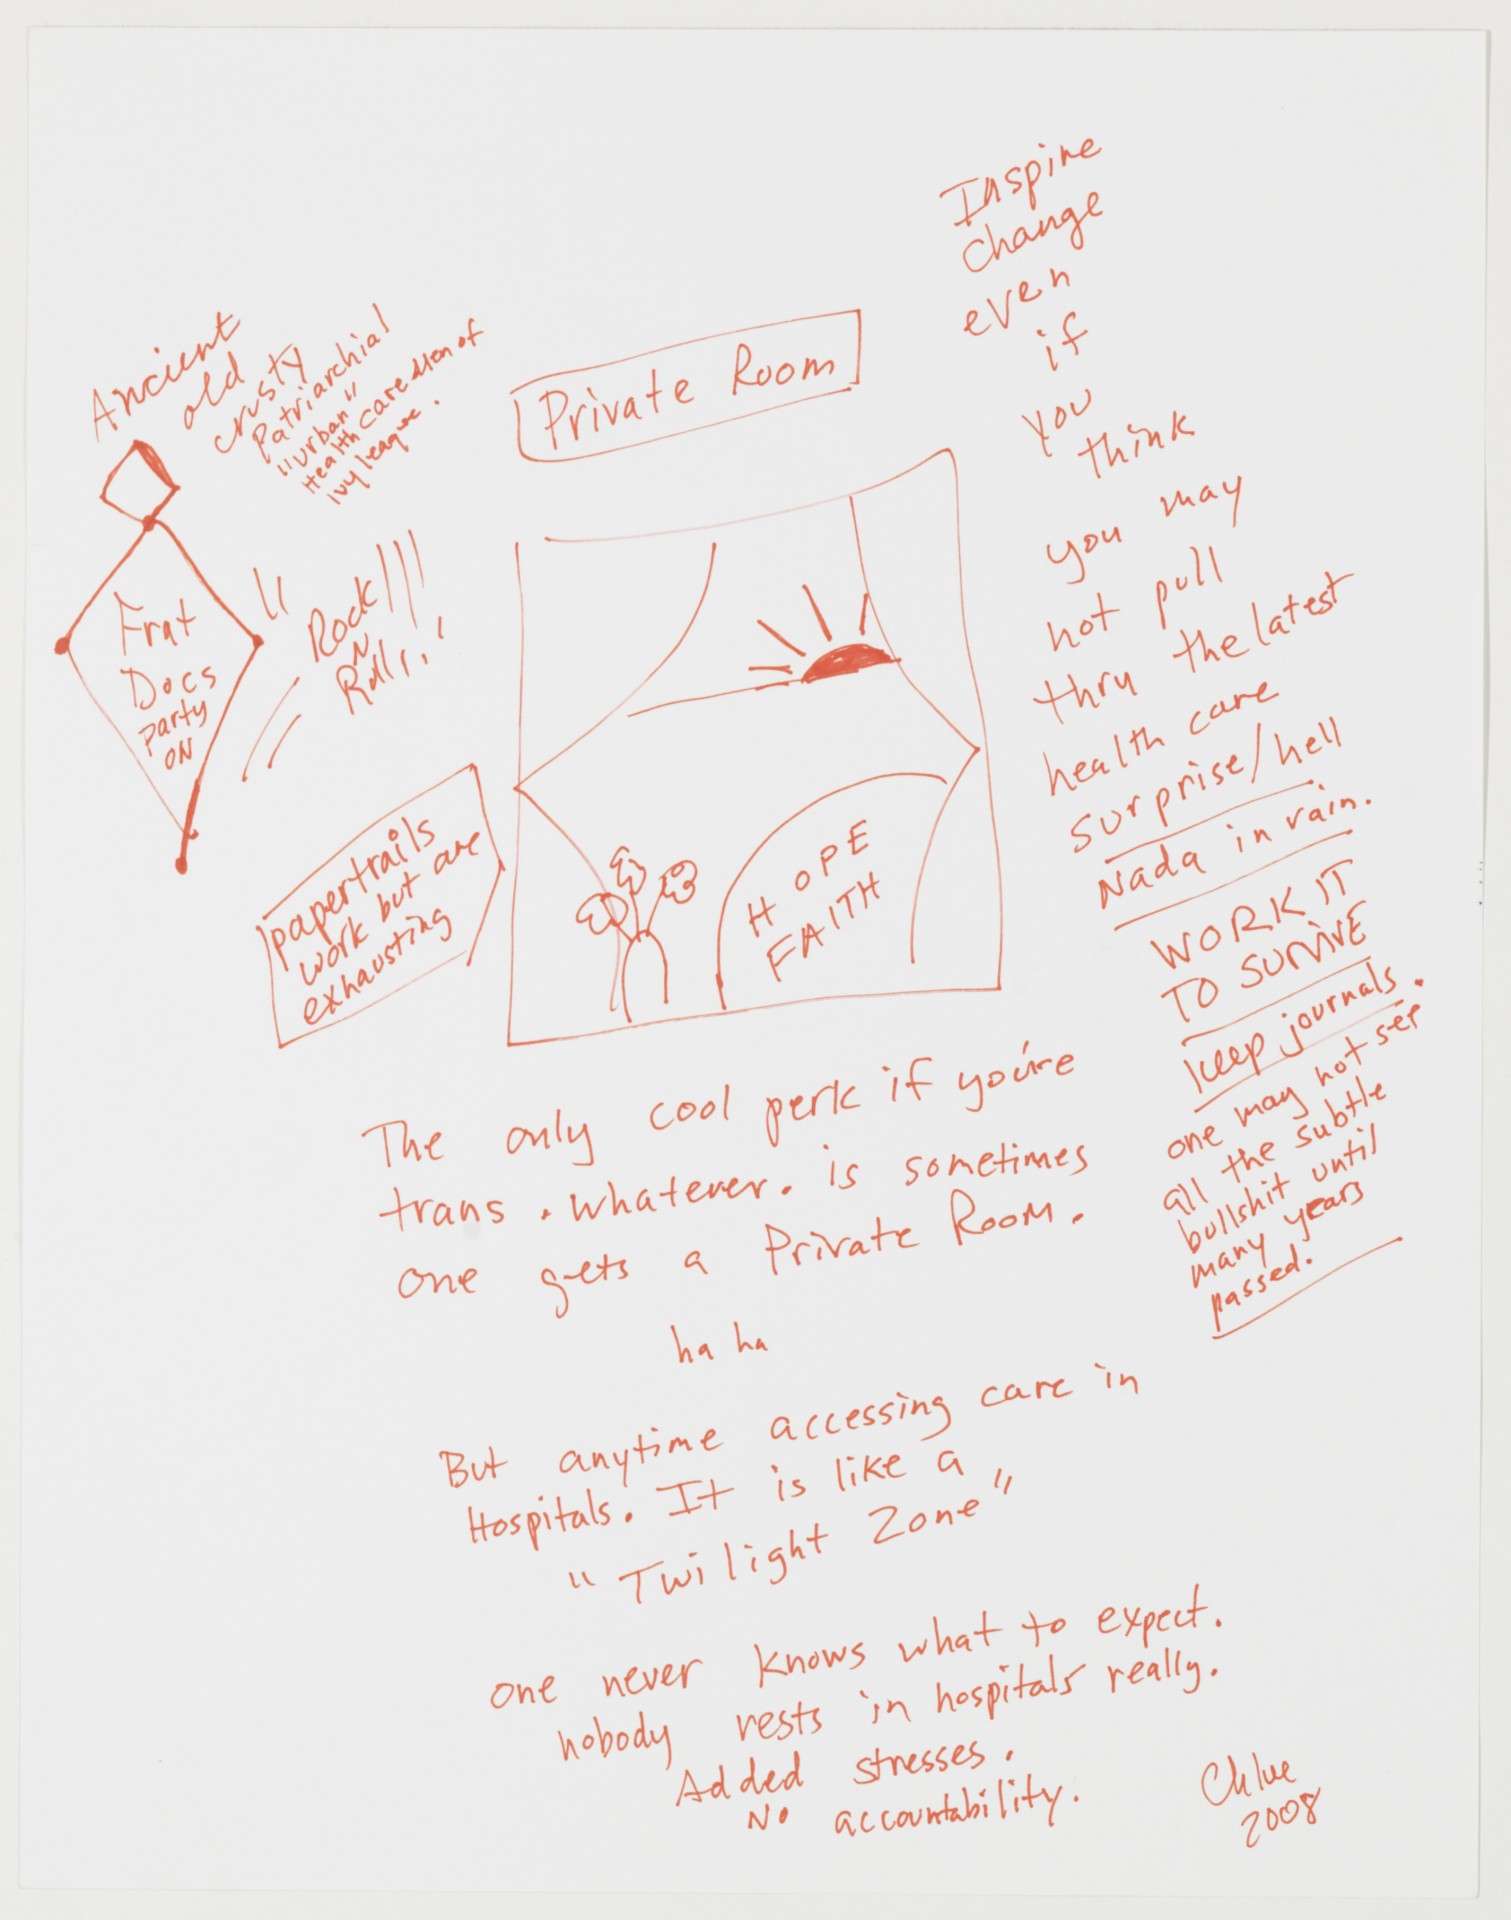 Ancient
old
crusty
Patriarchial
"urban"
Healthcare Men of
Ivy league.
Frat
Docs
party
ON
"
Rock
N
Roll!!
papertrails
work but are
exhausting
Private Room
HOPE
FAITH
Inspire
change
even
if
you
think
you may
not pull
thru the latest
health care
surprise/hell
Nada in vain.
WORK IT
TO SURVIVE
keep journals.
one may not see
all the subtle
bullshit until
many years
passed.
The only cool perk if you're
trans. whatever. is sometimes
one gets a Private Room.
ha ha
But anytime accessing care in
Hospitals. It is like a
"Twilight Zone"
one never knows what to expect.
nobody rests in hospitals really.
Added stresses.
No accountability.
Chloe
2008